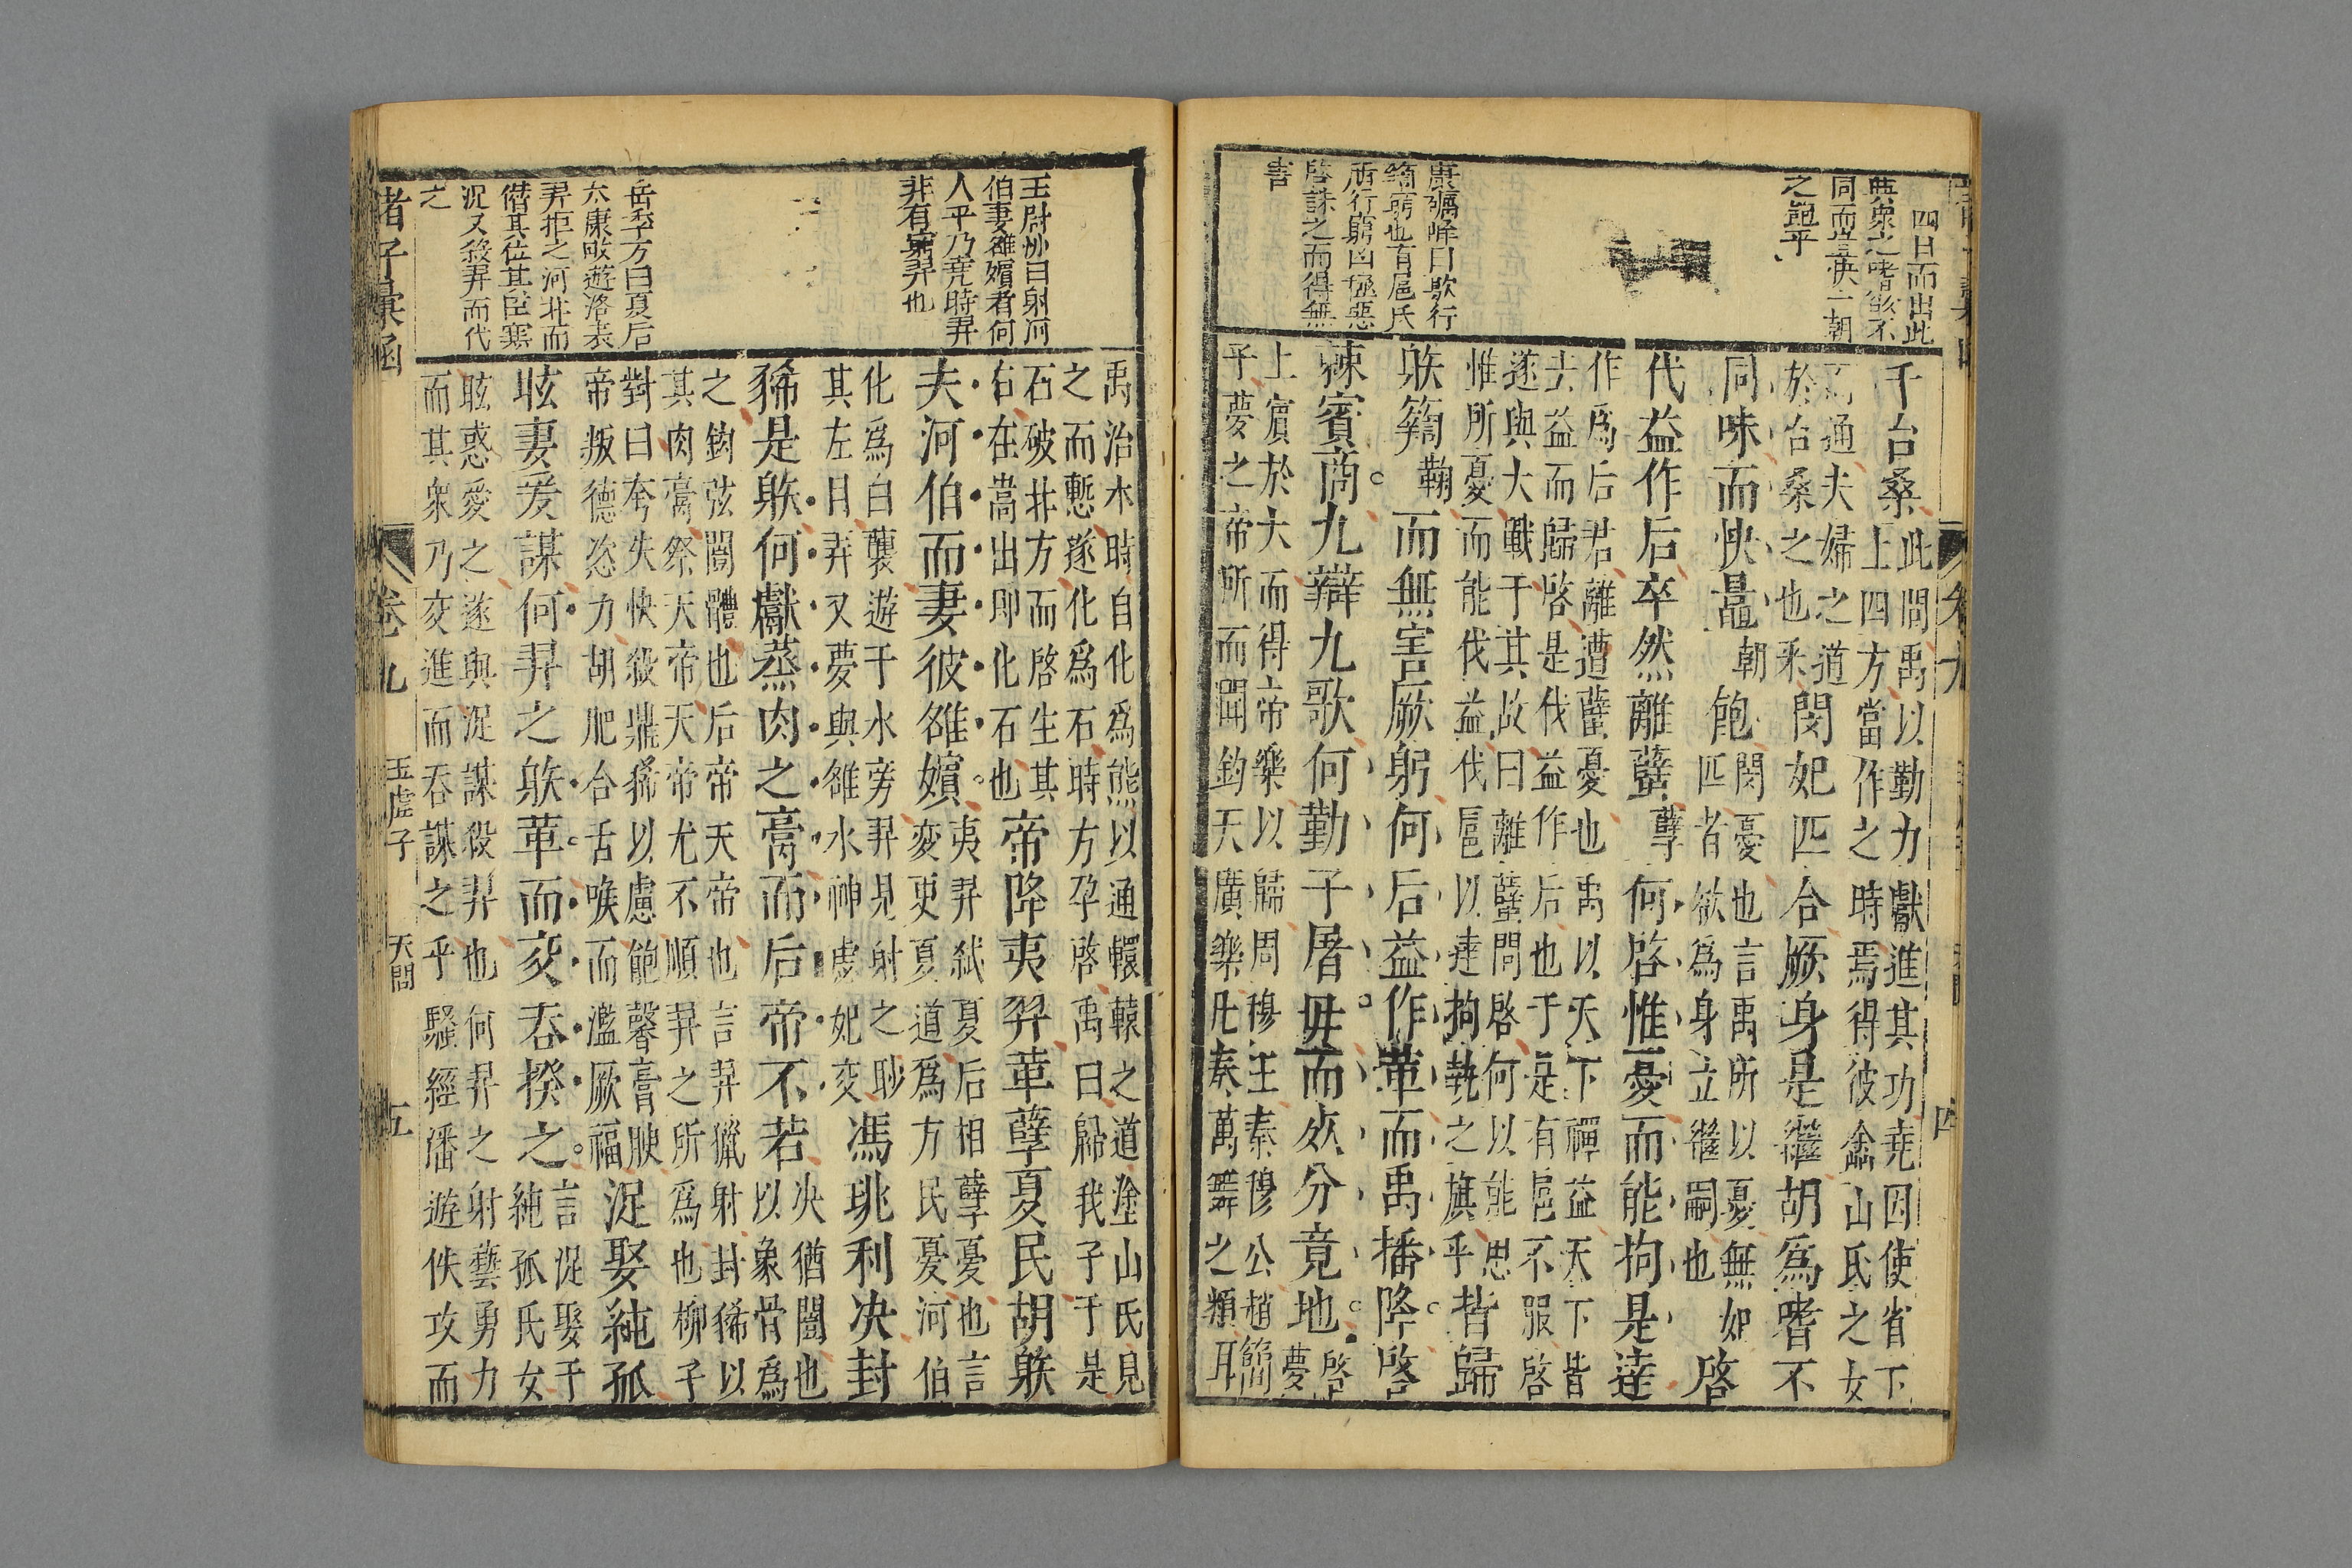 四日而出此
典衆之嗜慾不
同而豈快一朝
之飽乎
康礪峰曰歌行
籥萌也有扈氏
所行躬凶極惡
啓誅之而得無
害
于台桑此間禹以勤力獻進其功堯因使省下
上四方當作之時焉得彼嵞山氏之女
而通夫婦之道
於台桑之也采閔妃匹合厥身是繼胡爲嗜不
同味而快鼂朝飽閔憂也言禹所以憂無妃
匹者欲爲身立繼嗣也啓
代益作后卒然離蠥孼何啓惟憂而能拘是達
作爲后君離遭蠥憂也禹以天下禪益天下皆
去益而歸啓是伐益作后也于是有扈不服啓
遂與大戰于其故曰離蠥問啓何以能思
惟所憂而能伐益伐扈以達拘執之旗乎皆歸
䠶籥鞠而無害厥躬何后益作革而禹播降啓
棘賓商九辯九歌何勤子屠毋而死分竟地啓夢
上賓於大而得帝樂以歸周穆王秦穆公趙簡
子夢之帝所而聞鈞天廣樂凡奏萬舞之類耳
王尉妙曰射河
伯妻雒嬪者何
人乎乃堯時羿
非有窮羿也
岳季方曰夏后
太康畋遊洛表
羿拒之河北而
僭其位其臣寒
浞又殺羿而代
之
禹治水時自化爲熊以通轘轅之道塗山氏見
之而慙遂化爲石時方孕啓禹曰歸我子于是
石破北方而啓生其
石在嵩出即化石也帝降夷羿革孽夏民胡䠶
夫河伯而妻彼雒嬪夷羿弑夏后相孽憂也言
変更夏道爲方民憂河伯
化爲白龍遊于水旁羿見射之眇
其左目羿又夢與雒水神虙妃交馮珧利决封
狶是䠶何獻蒸肉之膏而后帝不若决猶闓也
以象骨爲
之鉤弦闓體也后帝天帝也言羿獵射封狶以
其肉膏祭天帝天帝尤不順羿之所爲也柳子
對曰夸失快殺鼎狶以慮飽馨膏腴
帝叛德恣力胡肥合舌喉而濫厥福浞娶純狐
眩妻爰謀何羿之䠶革而交吞揆之言浞娶于
純狐氏女
眩惑愛之遂與浞謀殺羿也何羿之射藝勇力
而其衆乃交進而吞謀之乎騷經羿遊佚攻而
諸子彙函
卷九
玉虛子
天問
五